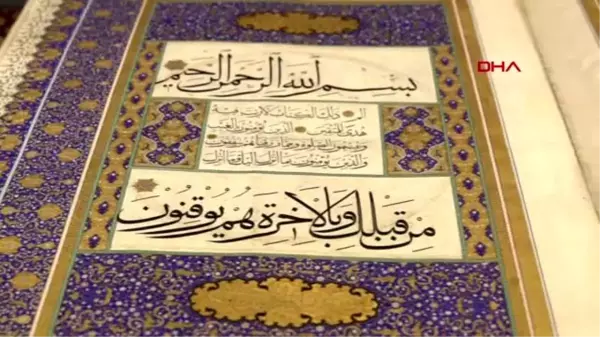 DHA
بسم الله الرحمن الرحيم
الم ذلك الكتاب لا ريب فيه
هدى للمتقين الذين يؤمنون بالغيب
ويقيمون الصلوة ومما رزقناهم ينفقون
والذين يؤمنون بما انزل اليك وما انزل
من قبلك وبالآخرة هم يوقنون